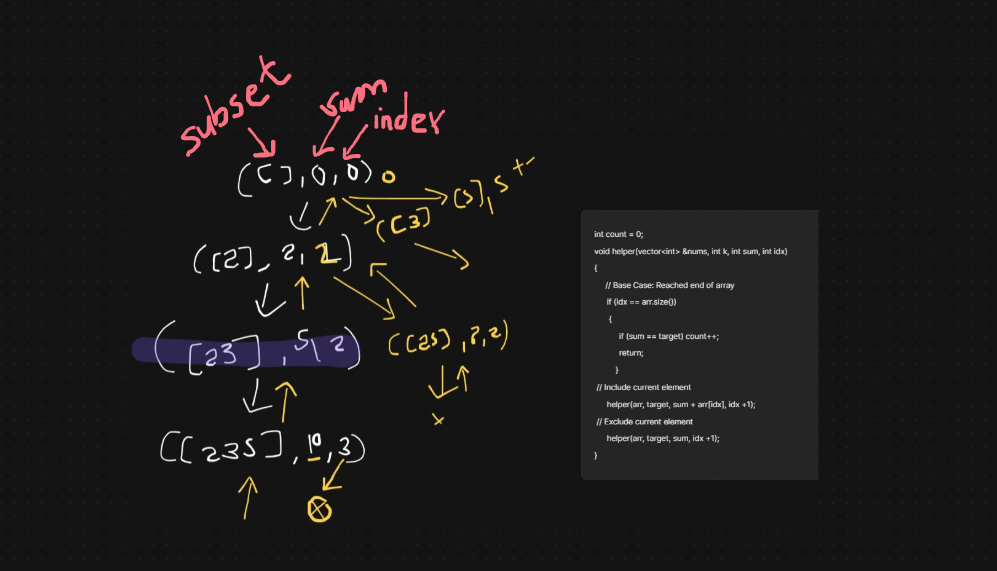 subset
sum
index
([], 0, 0) 0
([3]
[5], 5
([2], 2, 1)
([23], 5, 2)
([25], 7, 2)
x
([235], 10, 3)
int count = 0;
void helper(vector<int> &nums, int k, int sum, int idx)
{
// Base Case: Reached end of array
if (idx == arr.size())
{
if (sum == target) count++;
return;
}
// Include current element
helper(arr, target, sum + arr[idx], idx +1);
// Exclude current element
helper(arr, target, sum, idx +1);
}